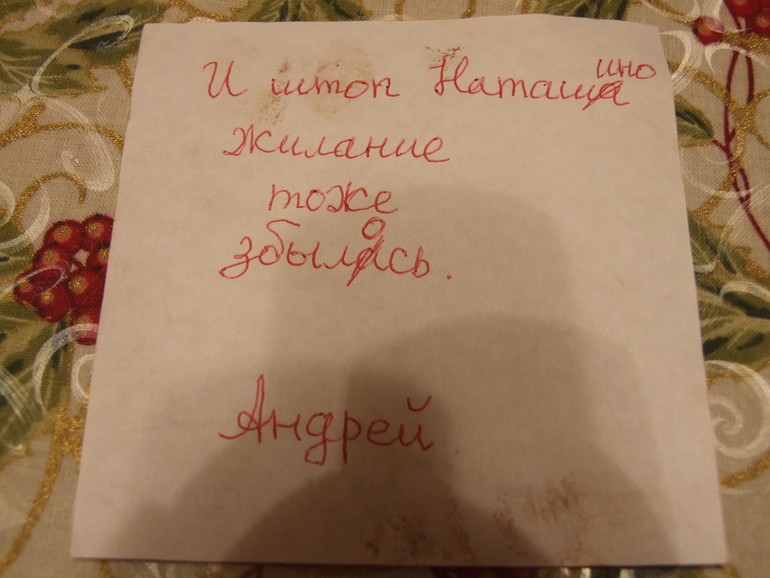 И штоп Наташино
жилание
тоже
збылось.
Андрей